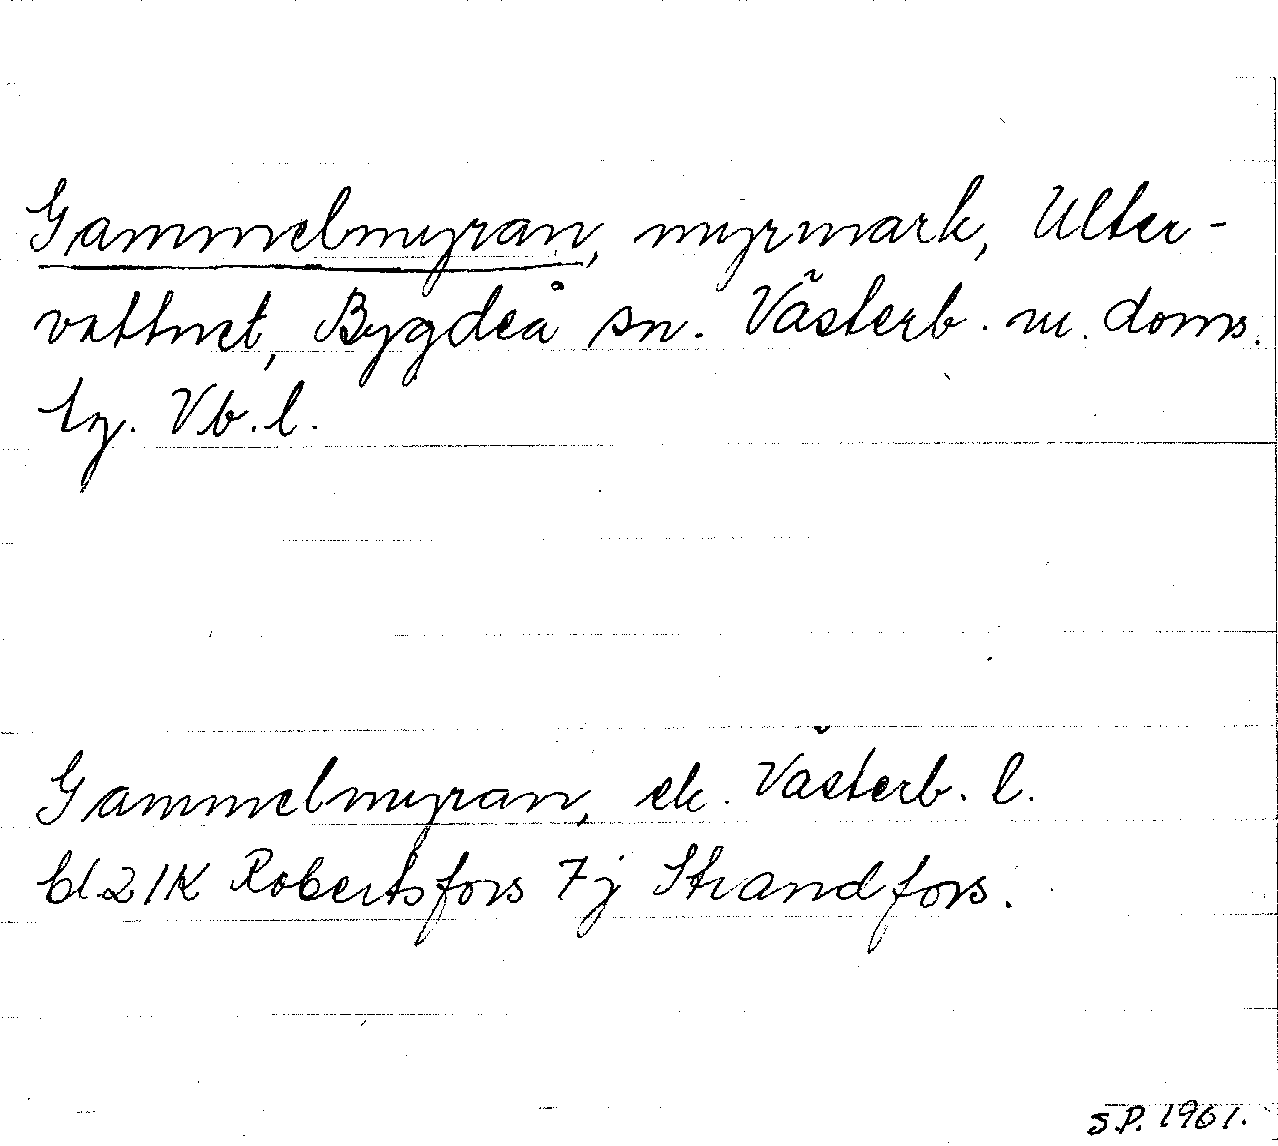 Gammelmyran, myrmark, Ulter-
vattnet, Bygdeå sn. Västerb. m. doms.
tg. Vb. l.
Gammelmyran, ek. Västerb. l.
bl 21K Robertsfors 7j Strandfors.
S.P. 1961.